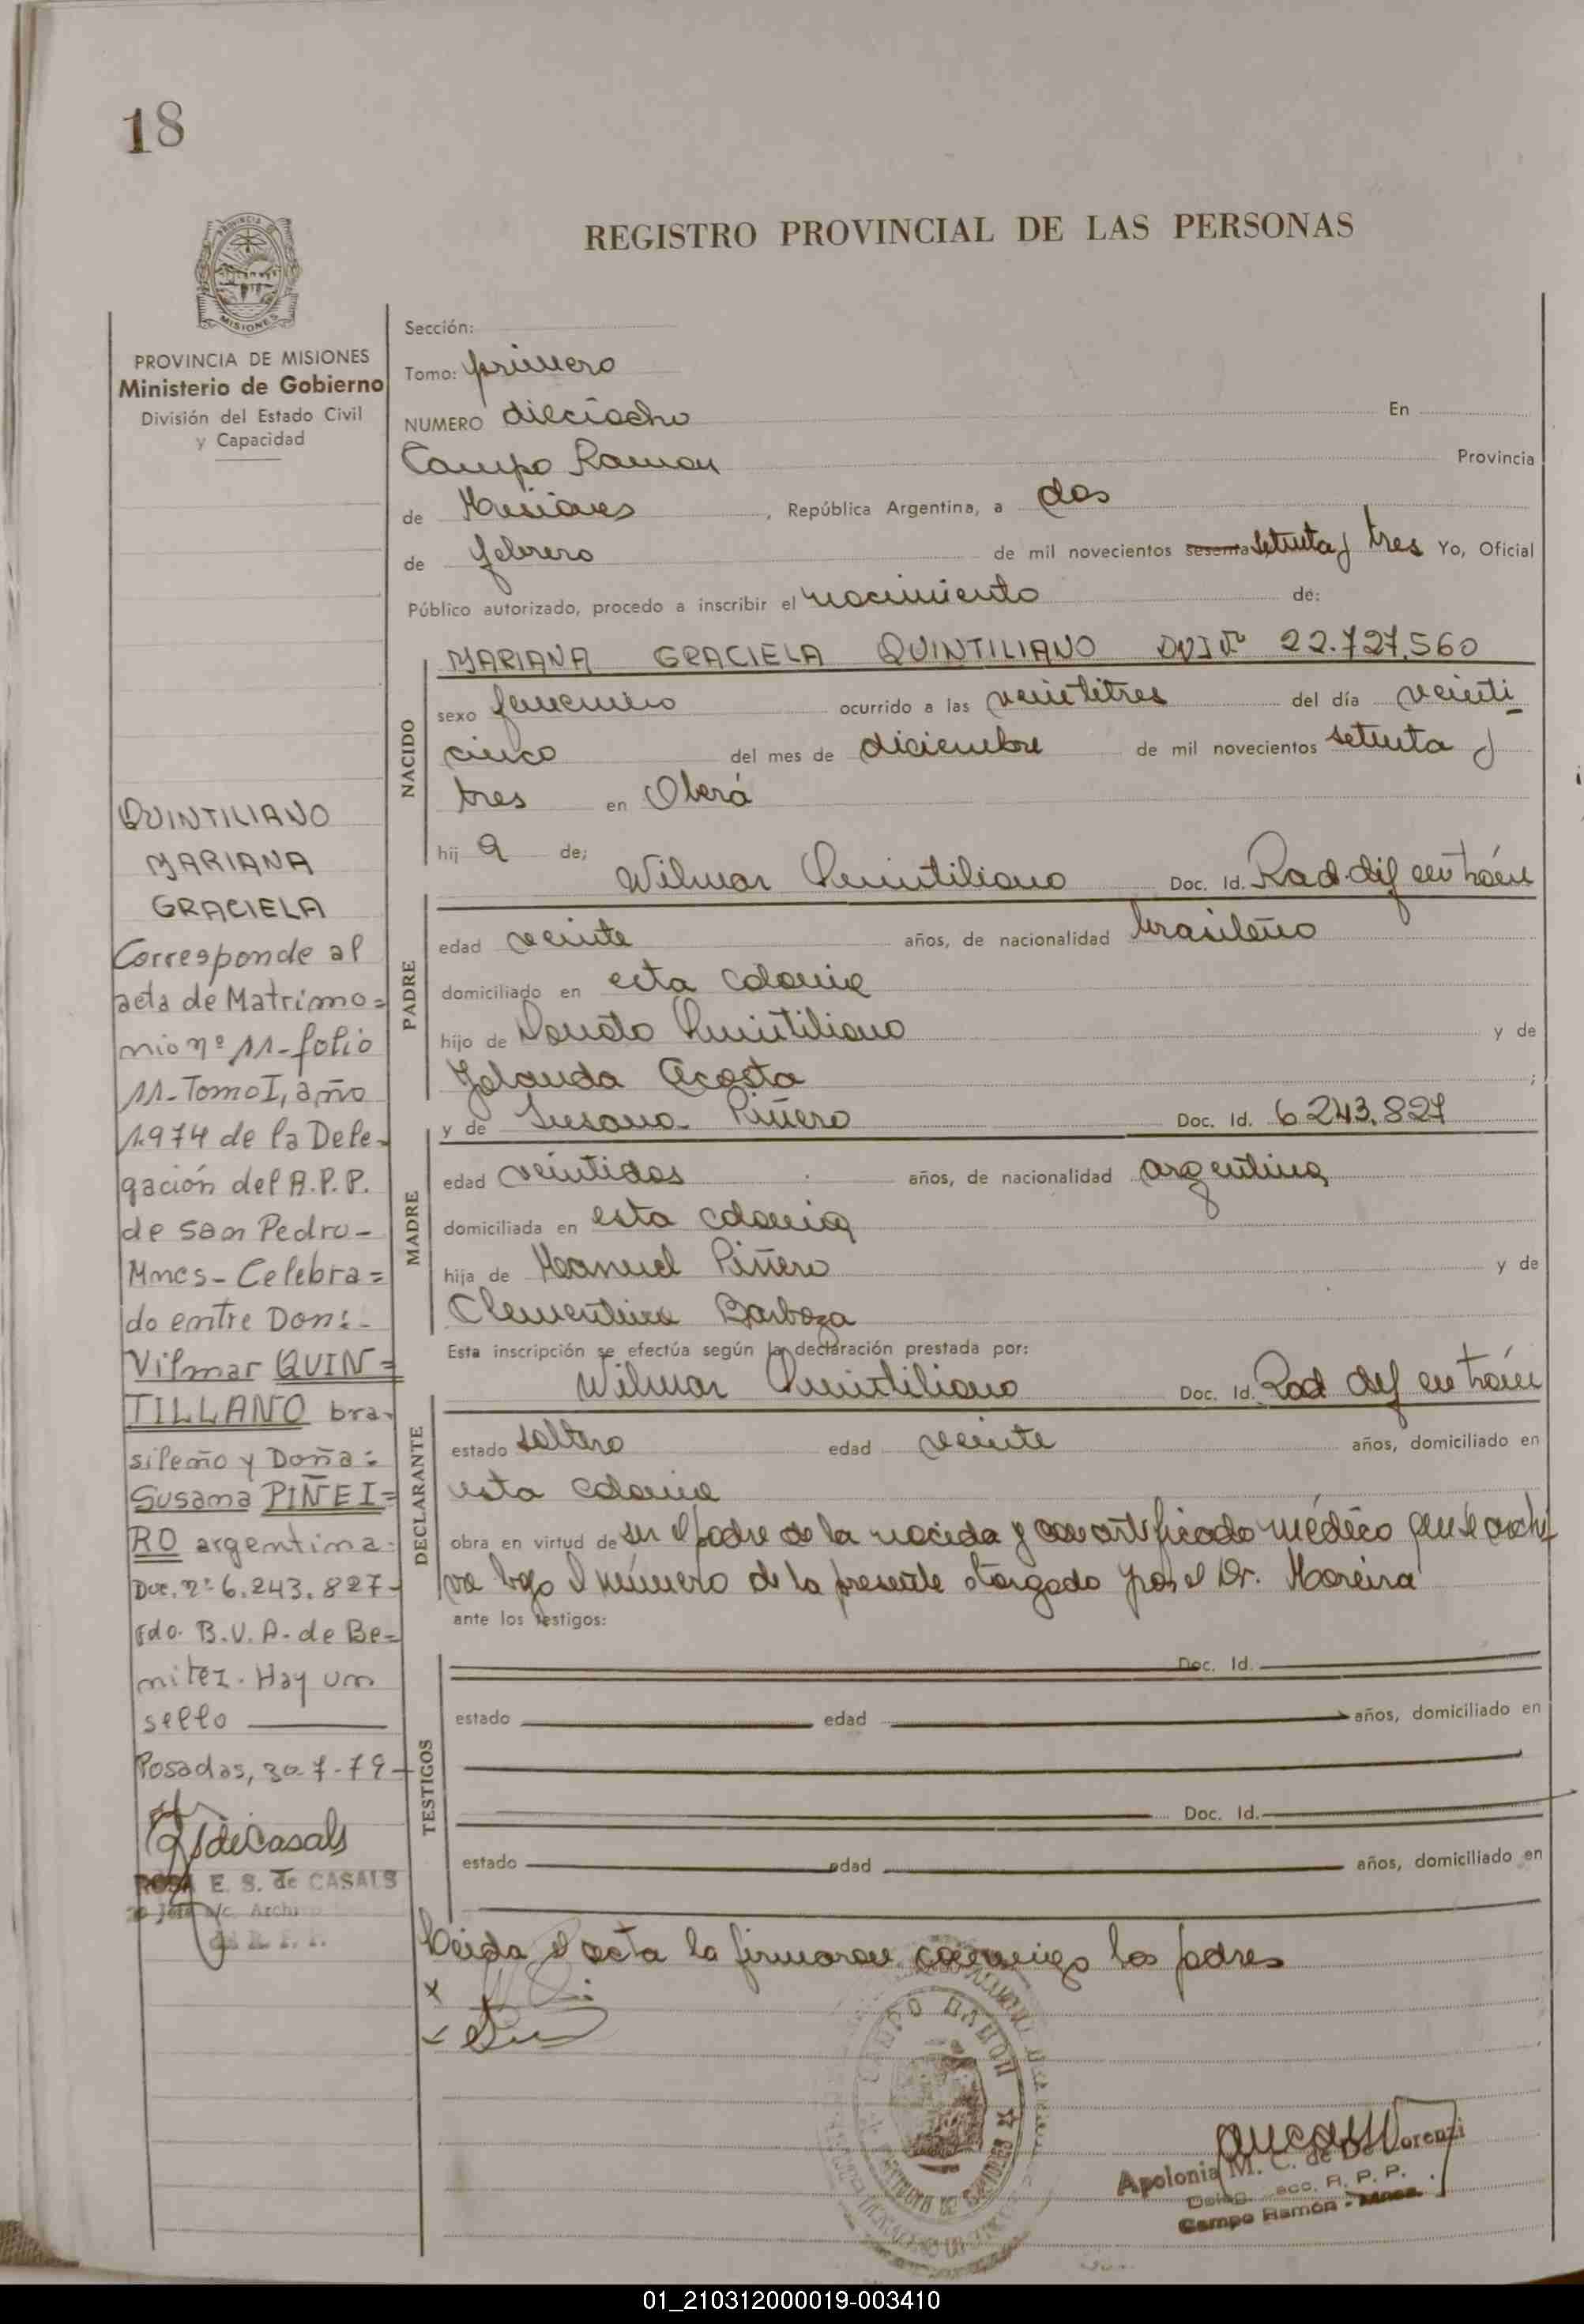 18
REGISTRO PROVINCIAL DE LAS PERSONAS
PROVINCIA
MISIONES
PROVINCIA DE MISIONES
Ministerio de Gobierno
División del Estado Civil
y Capacidad
Sección:
Tomo: primero
NUMERO dieciocho En
Campo Ramon Provincia
de Misiones, República Argentina, a dos
de febrero de mil novecientos sesenta setenta y tres Yo, Oficial
Público autorizado, procedo a inscribir el nacimiento de:
NACIDO
MARIANA GRACIELA QUINTILIANO DNI Nº 22.727.560
sexo femenino ocurrido a las veintitres del día veinti
cinco del mes de diciembre de mil novecientos setenta y
tres en Oberá
hij a de;
PADRE
Wilmar Quintiliano Doc. Id. Rad. dif en trám
edad veinte años, de nacionalidad brasileño
domiciliado en esta colonia
hijo de Donato Quintiliano y de
Yolanda Acosta ;
MADRE
y de Susana Piñero Doc. Id. 6243.827
edad veintidos años, de nacionalidad argentina
domiciliada en esta colonia
hija de Manuel Piñero y de
Clementina Barboza
Esta inscripción se efectúa según la declaración prestada por:
DECLARANTE
Wilmar Quintiliano Doc. Id. Rad def en trám
estado soltero edad veinte años, domiciliado en
esta colonia
obra en virtud de ser el padre de la nacida y con certificado médico que se archi
va bajo el número de la presente otorgado por el Dr. Moreira
ante los testigos:
TESTIGOS
Doc. Id.
estado edad años, domiciliado en
Doc. Id.
estado edad años, domiciliado en
Leida el acta la firmaron conmigo los padres
x
QUINTILIANO
MARIANA
GRACIELA
Corresponde al
acta de Matrimo=
nio nº 11-folio
11-Tomo I, año
1974 de la Dele-
gación del R.P.P.
de san Pedro-
Mnes- Celebra=
do entre Don:-
Vilmar QUIN=
TILLANO bra-
sileño y Doña:
Susana PIÑEI=
RO argentina-
Doc. nº 6.243.827-
fdo. B.V.A. de Be=
nitez. Hay un
sello
Posadas, 30-7-79
ROSA E. S. de CASALS
Jefa a/c. Archi
del R. P. P.
CAMPO RAMON
Apolonia M. C. de De Lorenzi
Deleg. R. P. P.
Campo Ramón - Mnes.
01_210312000019-003410